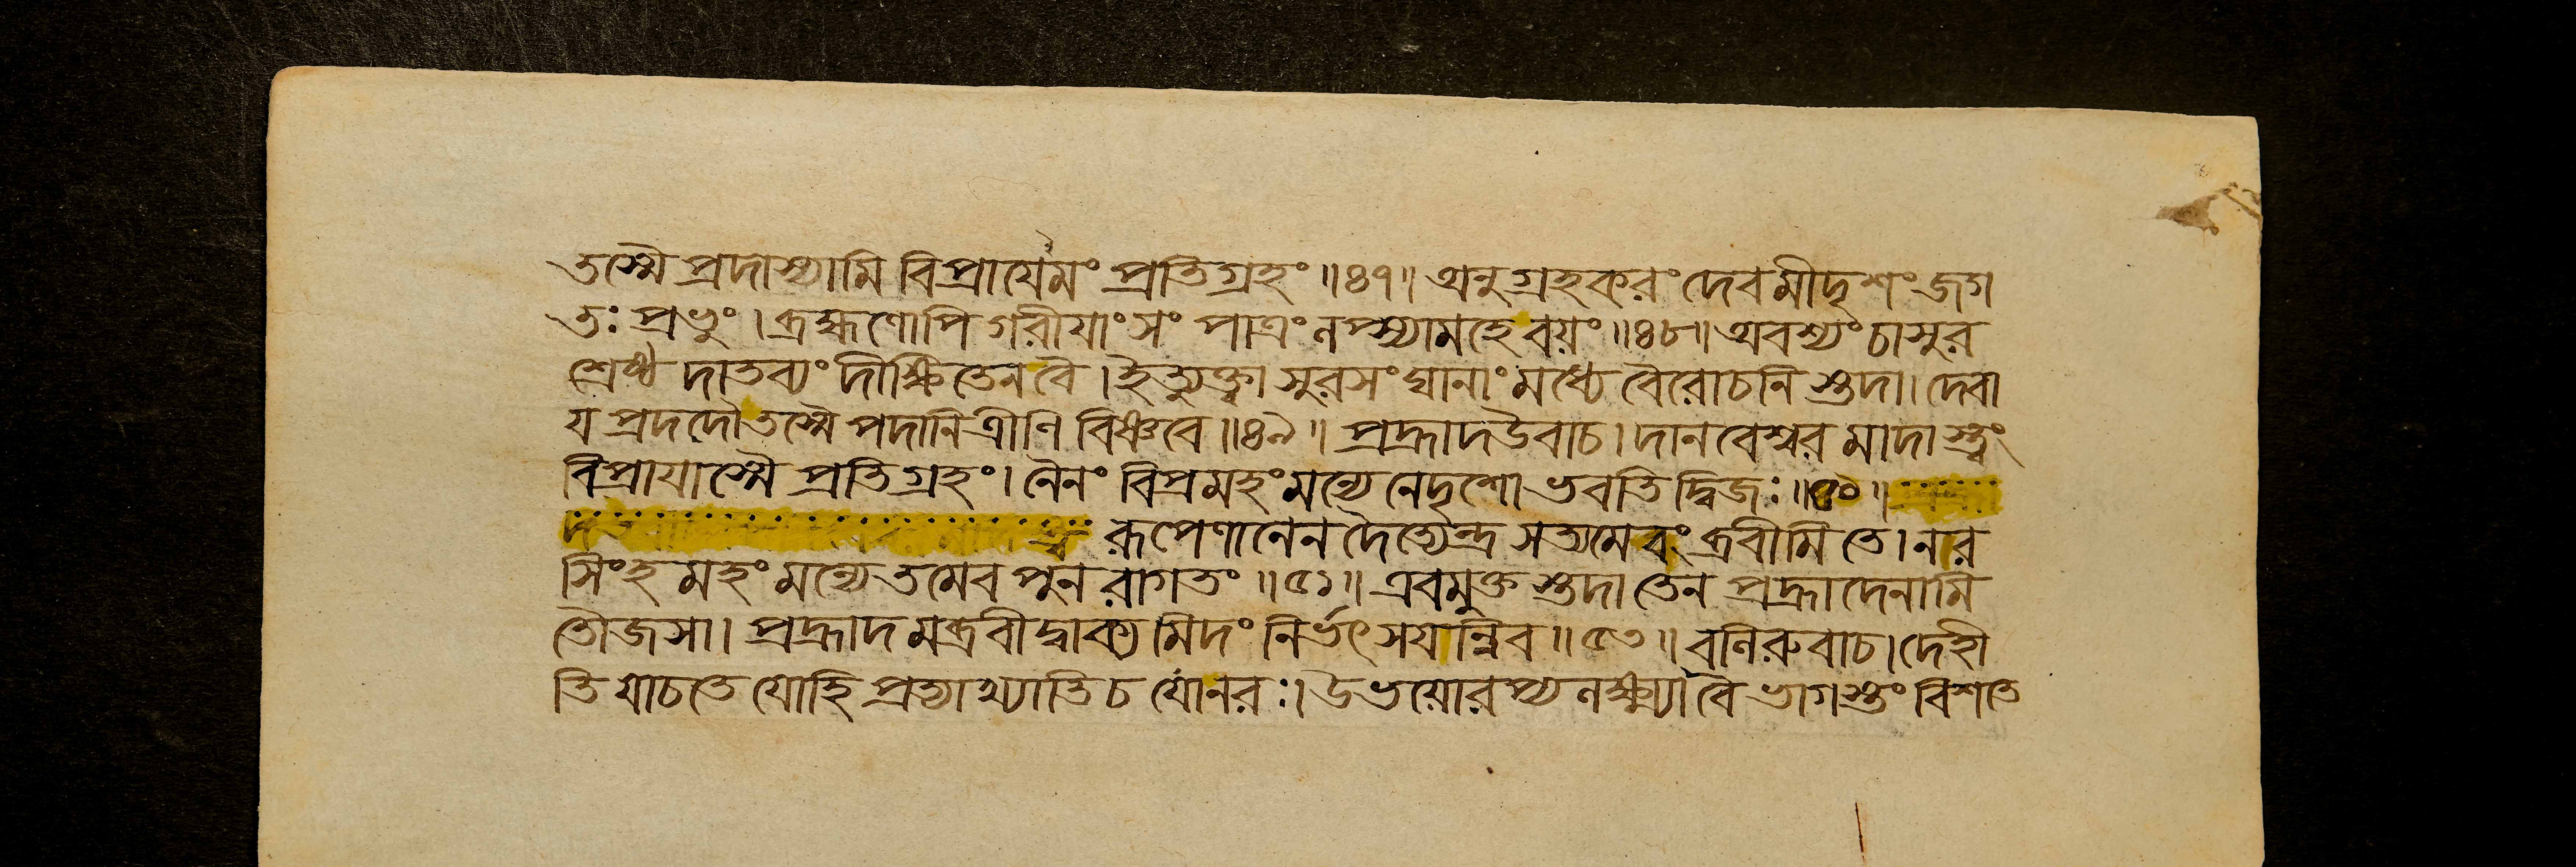 তস্মৈ প্রদাস্যামি বিপ্রাযেমং প্রতিগ্রহং॥৪৭॥ অনুগ্রহকরং দেবমীদৃশং জগ
তঃ প্রভুং। ব্রহ্মণোপি গরীযাংসং পাত্রং লপ্স্যামহে বয়ং॥৪৮॥ অবশ্যং চাসুর
শ্রেষ্ঠ দাতব্যং দীক্ষিতেন বৈ। ইত্যুক্ত্বাসুরসংঘানাং মধ্যে বৈরোচনিস্তদা। দেবা
য প্রদদৌ তস্মৈ পদানি ত্রীণি বিষ্ণবে॥৪৯॥ প্রহ্লাদ উবাচ। দানবেশ্বর মা দাস্ত্বং
বিপ্রাযাস্মৈ প্রতিগ্রহং। নৈনং বিপ্রমহং মন্যে নেদৃশো ভবতি দ্বিজঃ॥৫০॥
রূপেণানেন দৈত্যেন্দ্র সত্যমেবং ব্রবীমি তে। নার
সিংহমহং মন্যে তমেব পুনরাগতং॥৫১॥ এবমুক্তস্তদা তেন প্রহ্লাদেনামি
তৌজসা। প্রহ্লাদমব্রবীদ্বাক্যমিদং নির্ভৎসযন্নিব॥৫২॥ বলিরুবাচ। দেহী
তি যাচতে যোহি প্রত্যাখ্যাতি চ যো নরঃ। উভয়োরপ্যলক্ষ্ম্যা বৈ ভাগস্তং বিশতে